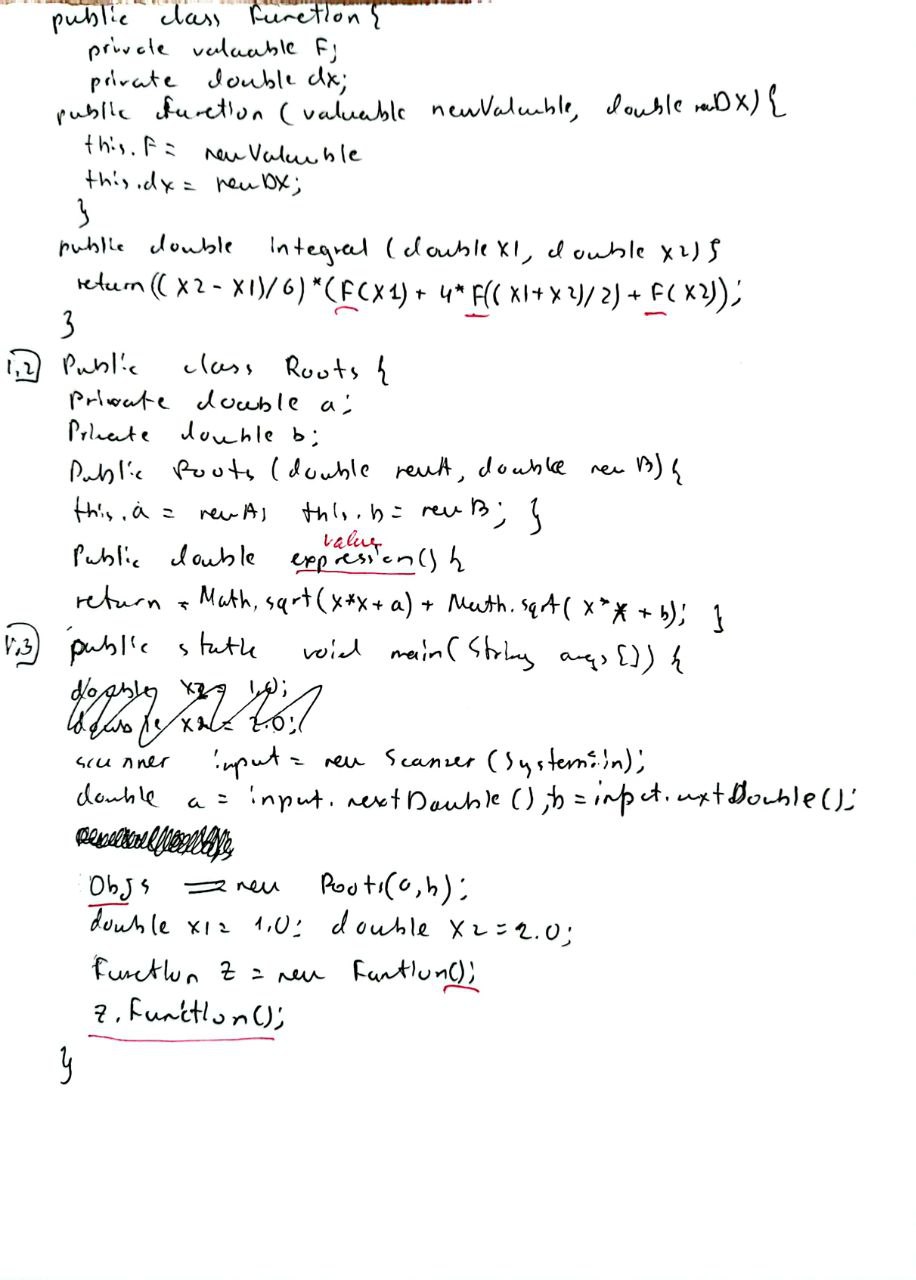 public class Function {
private valuable F;
private double dx;
public function ( valuable newValuable, double newDX) {
this.F = newValuable
this.dx = newDX;
}
public double integral ( double x1, double x2) {
return (( x2 - x1)/6) * (F(x1) + 4* F((x1+x2)/2) + F(x2));
}
1,2 Public class Roots {
Private double a;
Private double b;
Public Roots (double newA, double new B) {
this.a = newA; this.b = newB; }
value
Public double expression() {
return = Math.sqrt(x*x+a) + Math.sqrt( x*x + b); }
1,3 public static void main( String args []) {
double x1 = 1,0;
double x2 = 2.0;
scunner input = new Scanner (System.in);
double a = input.nextDouble (), b = input.nextDouble();
Obj s = new Roots(a,b);
double x1 = 1,0; double x2 = 2.0;
Function z = new Function();
z.Function();
}